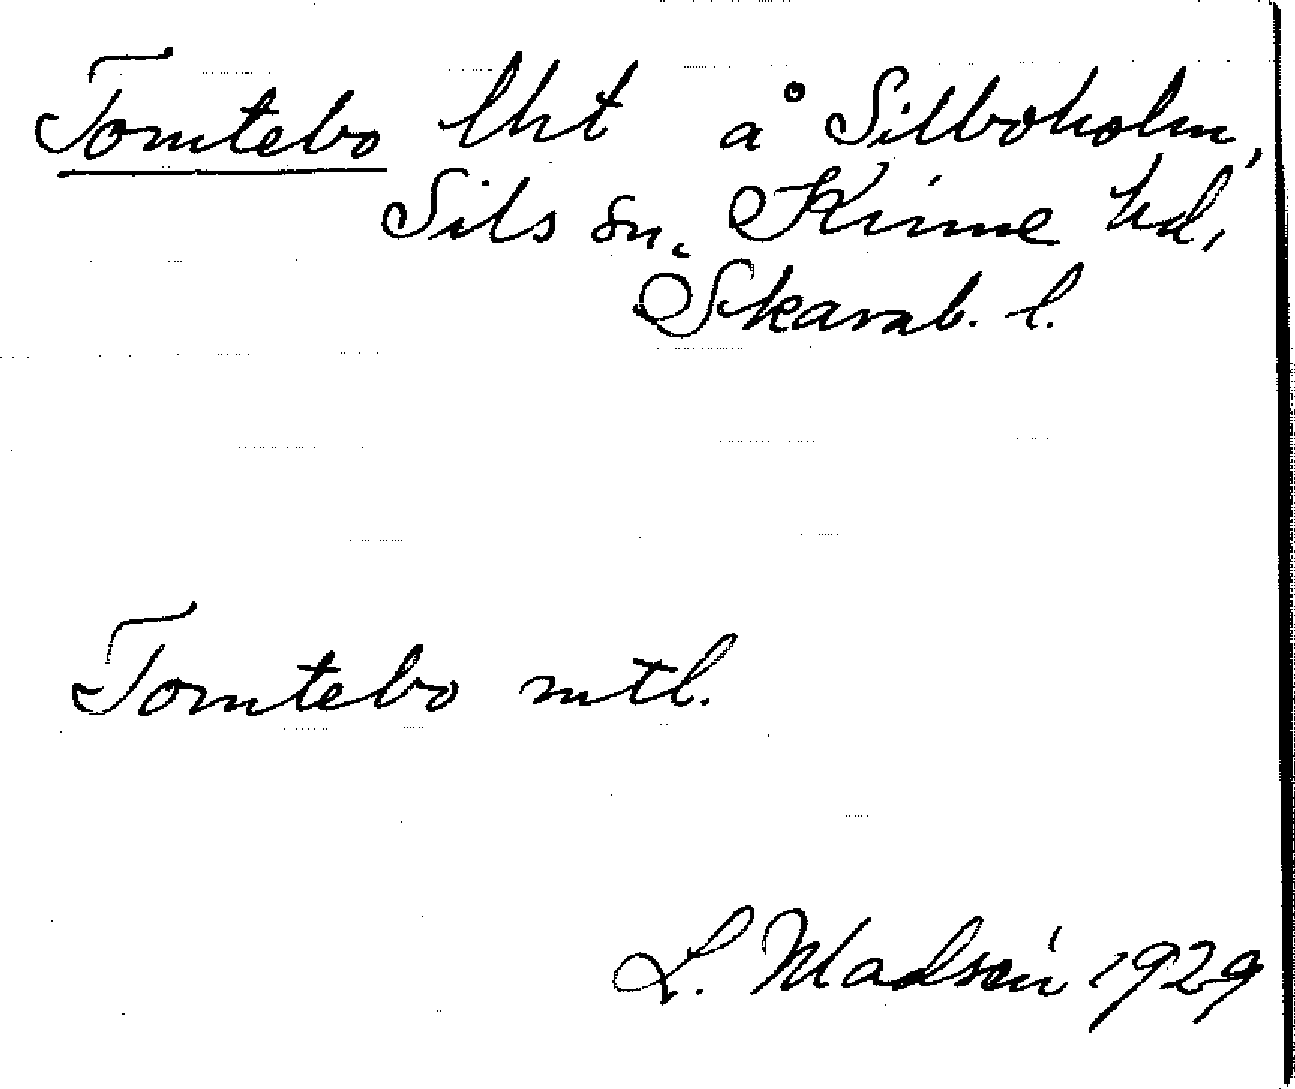 Tomtebo lht å Silboholm,
Sils sn. Kinne hd,
Skarab. l.
Tomtebo mtl.
L. Madsén 1929